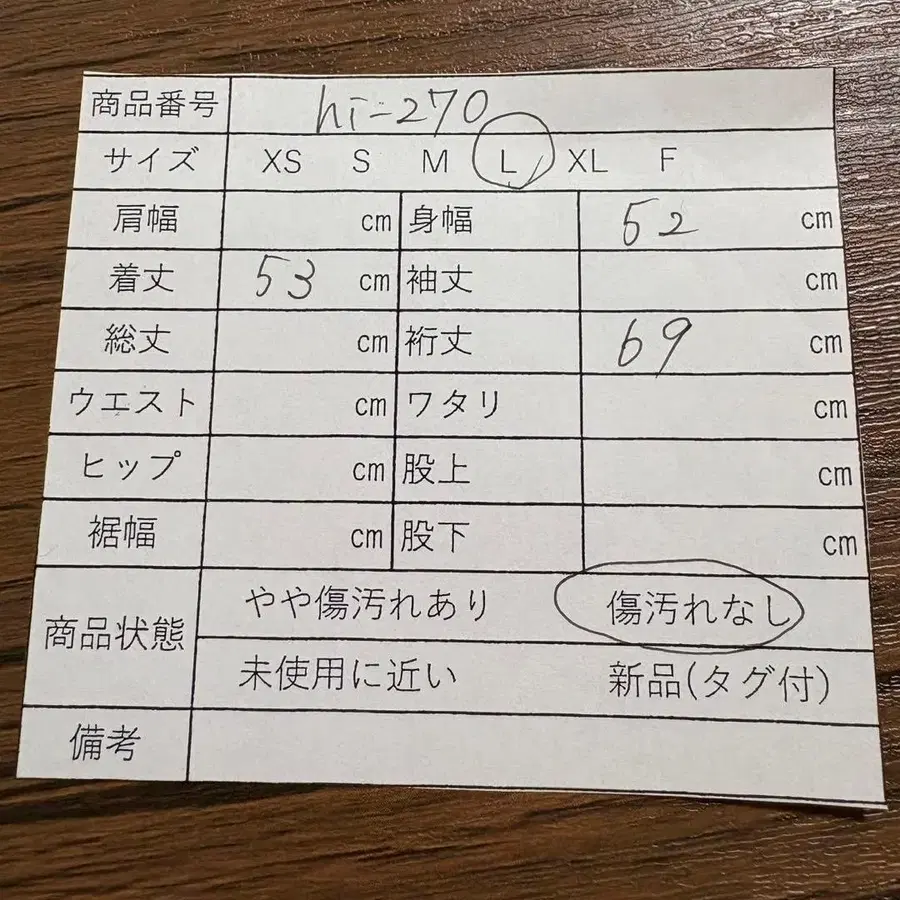 商品番号 hi-270
サイズ XS S M L XL F
肩幅 cm 身幅 52 cm
着丈 53 cm 袖丈 cm
総丈 cm 裄丈 69 cm
ウエスト cm ワタリ cm
ヒップ cm 股上 cm
裾幅 cm 股下 cm
商品状態 やや傷汚れあり 傷汚れなし
未使用に近い 新品(タグ付)
備考